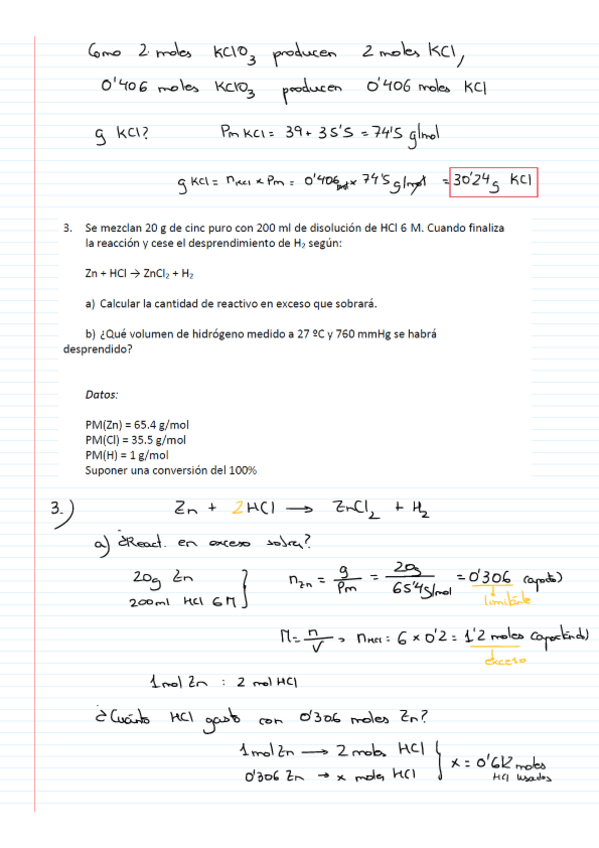 Como 2 moles KClO3 producen 2 moles KCl,
0'406 moles KClO3 producen 0'406 moles KCl
g KCl? Pm KCl = 39 + 35'5 = 74'5 g/mol
g KCl = nKCl x Pm = 0'406 mol x 74'5 g/mol = 30'24 g KCl
3. Se mezclan 20 g de cinc puro con 200 ml de disolución de HCl 6 M. Cuando finaliza
la reacción y cese el desprendimiento de H2 según:
Zn + HCl → ZnCl2 + H2
a) Calcular la cantidad de reactivo en exceso que sobrará.
b) ¿Qué volumen de hidrógeno medido a 27 ºC y 760 mmHg se habrá
desprendido?
Datos:
PM(Zn) = 65.4 g/mol
PM(Cl) = 35.5 g/mol
PM(H) = 1 g/mol
Suponer una conversión del 100%
3.) Zn + 2HCl → ZnCl2 + H2
a) ¿React. en exceso sobra?
20g Zn
200ml HCl 6M
nZn = g/Pm = 20g/65'4g/mol = 0'306 (aporto)
limitante
M = n/V → nHCl: 6 x 0'2 = 1'2 moles (aportando)
exceso
1 mol Zn : 2 mol HCl
¿Cuánto HCl gasto con 0'306 moles Zn?
1 mol Zn → 2 moles HCl
0'306 Zn → x moles HCl
x = 0'612 moles
HCl usados